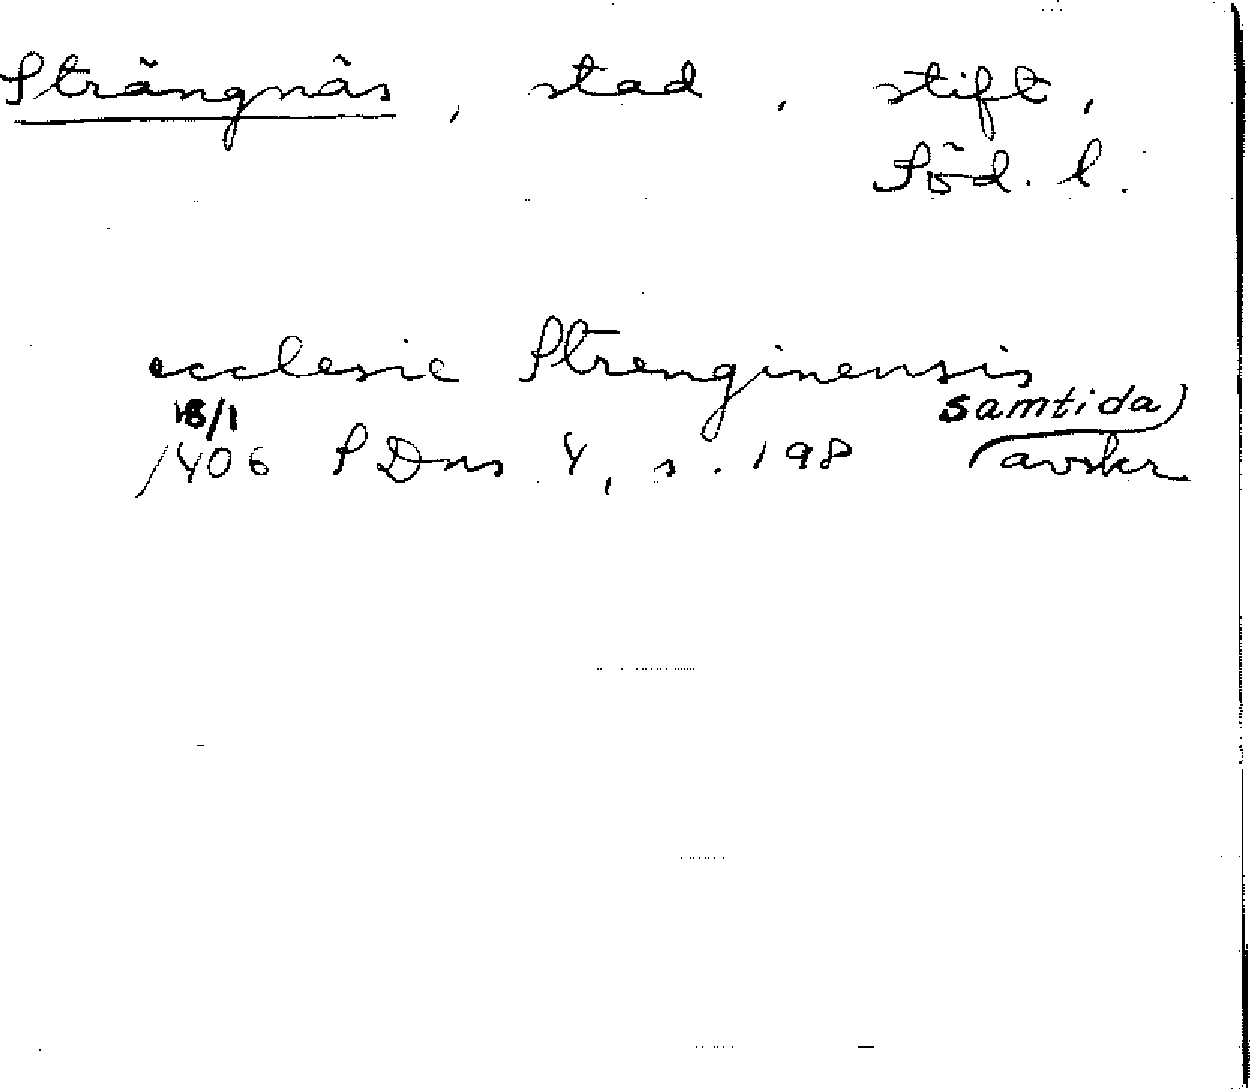 Strängnäs, stad, stift,
Söd. l.
ecclesie Strenginensis
18/1 samtida)
1406 SDns 4, s. 198 avskr